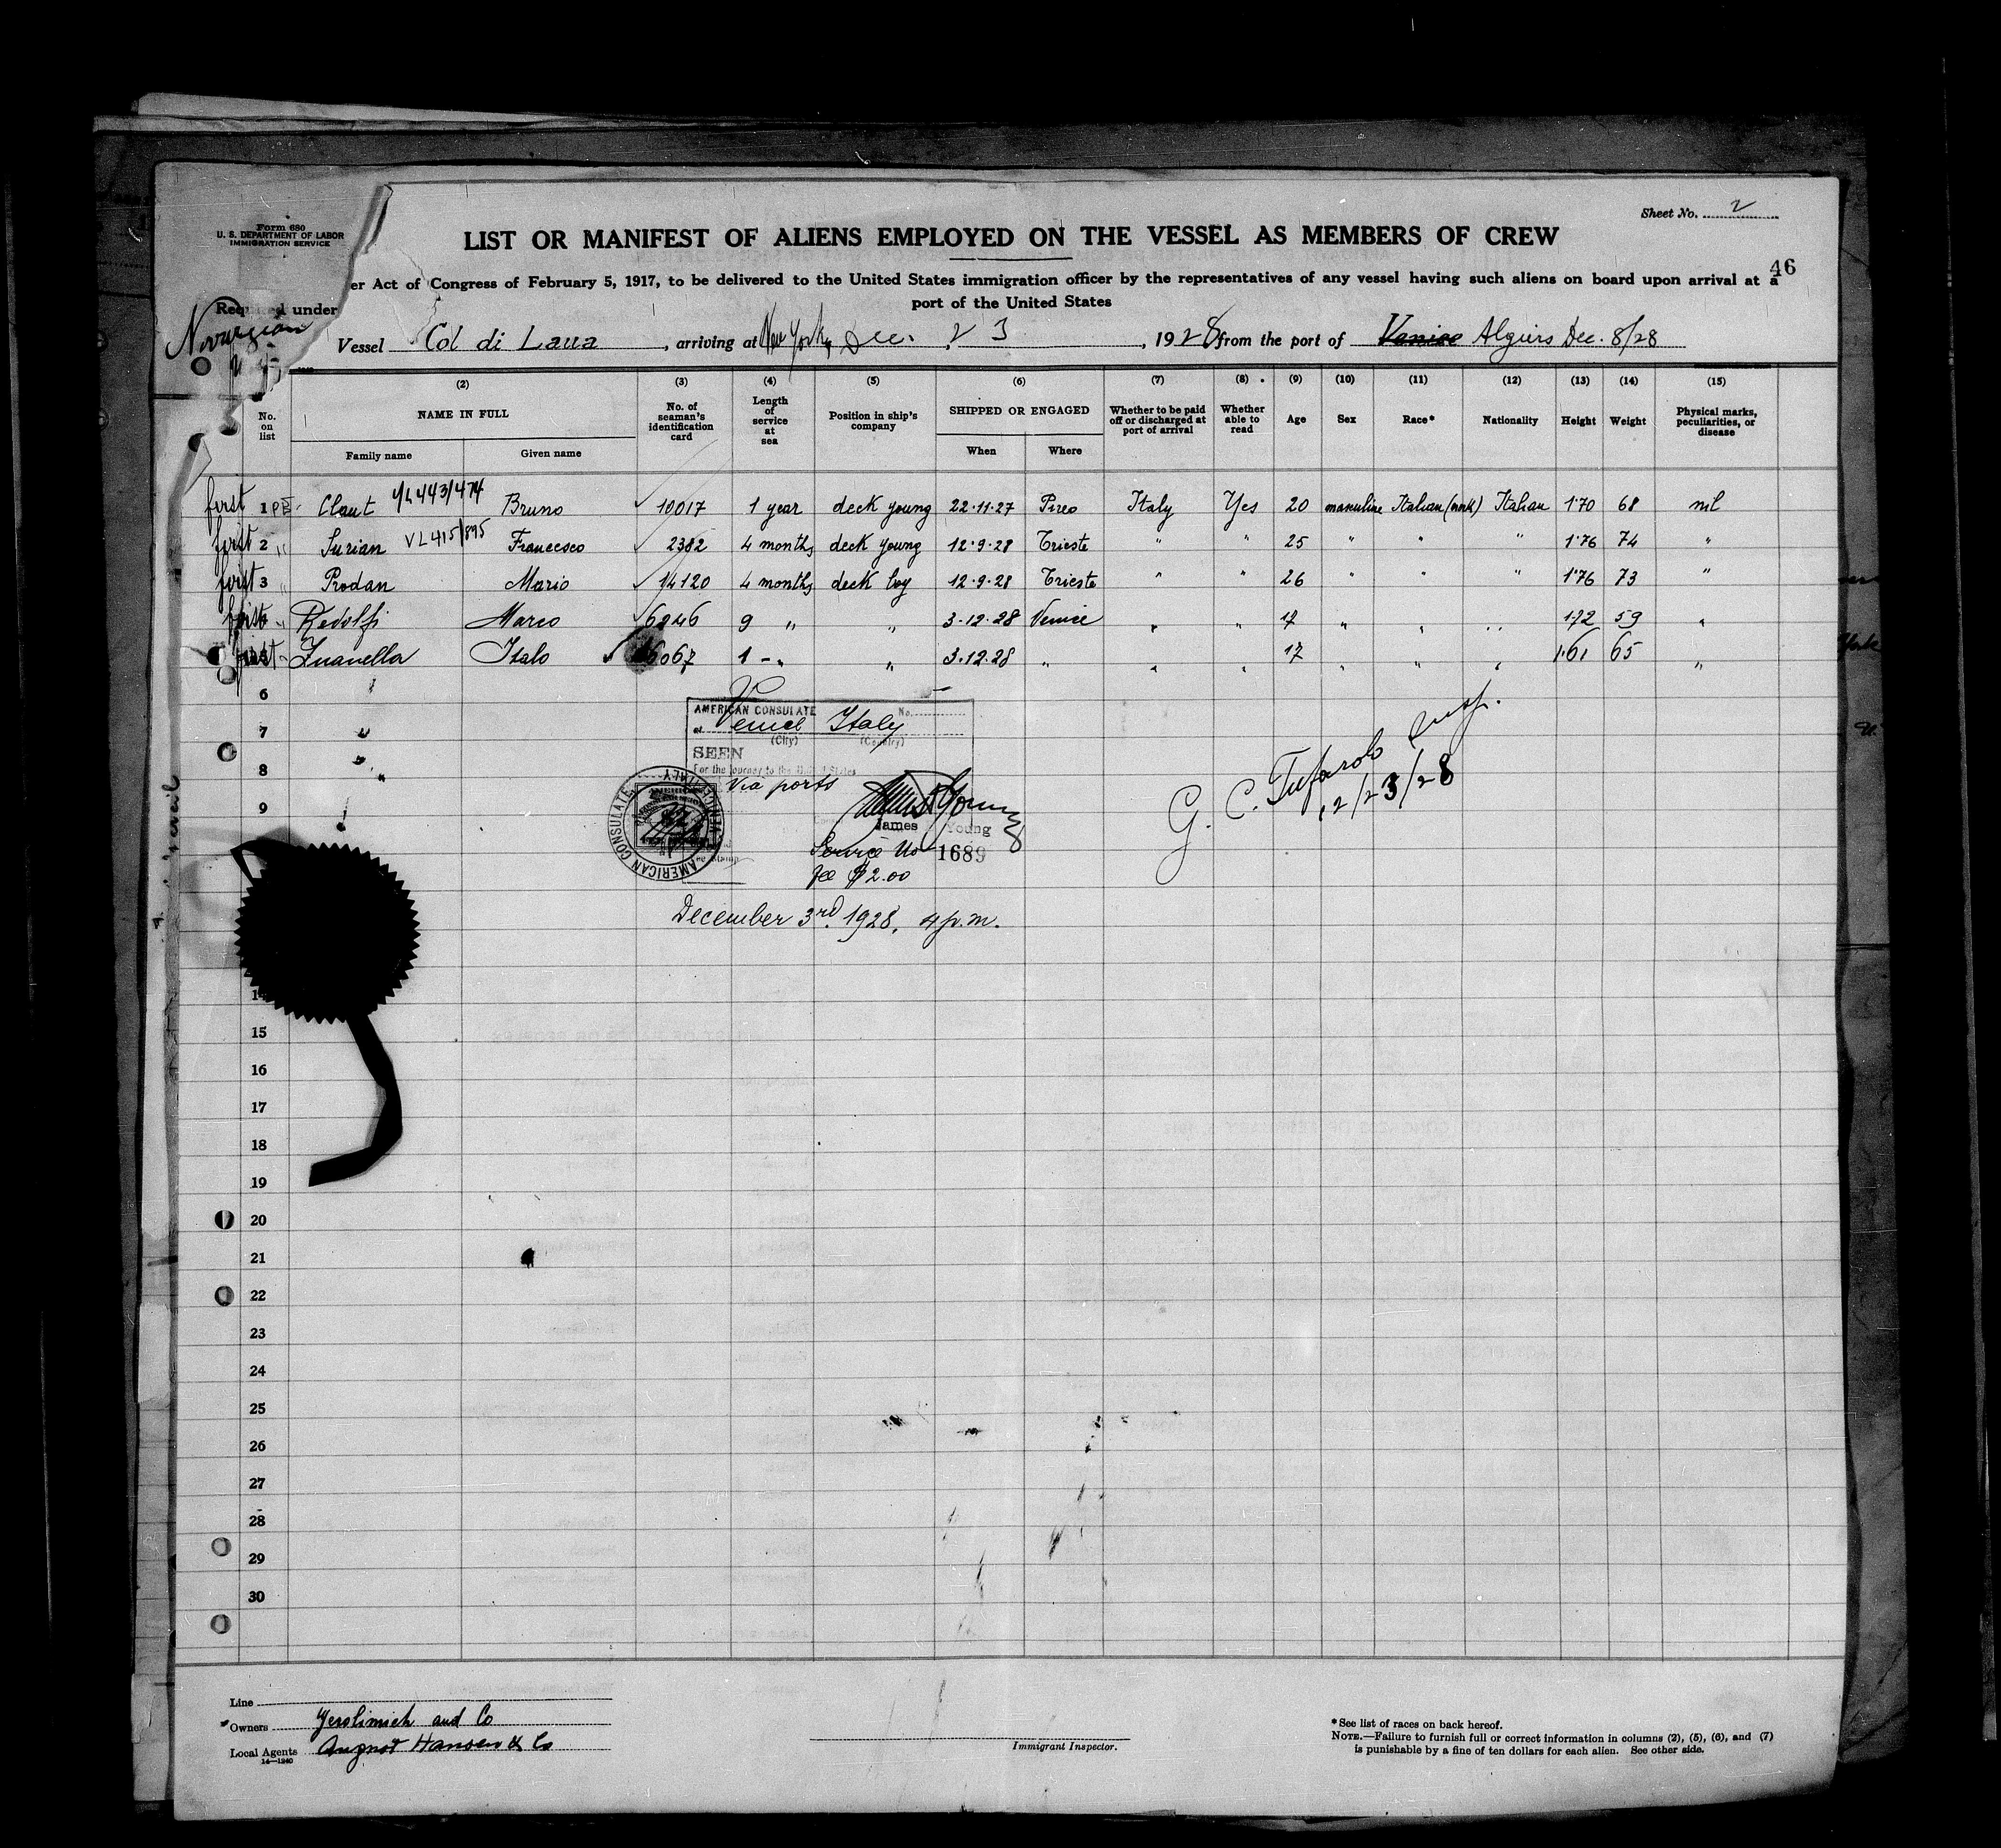 Sheet No. 2
Form 680
U. S. DEPARTMENT OF LABOR
IMMIGRATION SERVICE
LIST OR MANIFEST OF ALIENS EMPLOYED ON THE VESSEL AS MEMBERS OF CREW
46
Required under
er Act of Congress of February 5, 1917, to be delivered to the United States immigration officer by the representatives of any vessel having such aliens on board upon arrival at a
port of the United States
Vessel Col di Lana, arriving at New York, Dec. 23, 1928 from the port of Venice Algiers Dec. 8/28
(2) (3) (4) (5) (6) (7) (8) (9) (10) (11) (12) (13) (14) (15)
No. on list NAME IN FULL No. of seaman's identification card Length of service at sea Position in ship's company SHIPPED OR ENGAGED Whether to be paid off or discharged at port of arrival Whether able to read Age Sex Race* Nationality Height Weight Physical marks, peculiarities, or disease
Family name Given name When Where
first 1 Claut VL443/474 Bruno 10017 1 year deck young 22.11.27 Pireo Italy Yes 20 masculine Italian Italian 1.70 68 nil
first 2 " Surian VL415/895 Francesco 2382 4 months deck young 12.9.28 Trieste " " 25 " " " 1.76 74 "
first 3 " Prodan Mario 14120 4 months deck boy 12.9.28 Trieste " " 26 " " " 1.76 73 "
first " Redolfi Marco 6246 9 " " 3.12.28 Venice " " 17 " " " 1.72 59 "
first Zuanella Italo 6067 1 - " " 3.12.28 " " " 17 " " " 1.61 65 "
6
7
8
9
AMERICAN CONSULATE No.
at Venice Italy
(City) (Country)
SEEN
For the journey to the United States
Via ports
James Young
Service No 1689
fee $2.00
AMERICAN CONSULATE
December 3rd. 1928, 4 p.m.
G. C. Tufarolo Insp.
12/23/28
14
15
16
17
18
19
20
21
22
23
24
25
26
27
28
29
30
Line
Owners Gerolimich and Co
Local Agents August Hansen & Co
14—1240
Immigrant Inspector.
*See list of races on back hereof.
NOTE.—Failure to furnish full or correct information in columns (2), (5), (6), and (7)
is punishable by a fine of ten dollars for each alien. See other side.